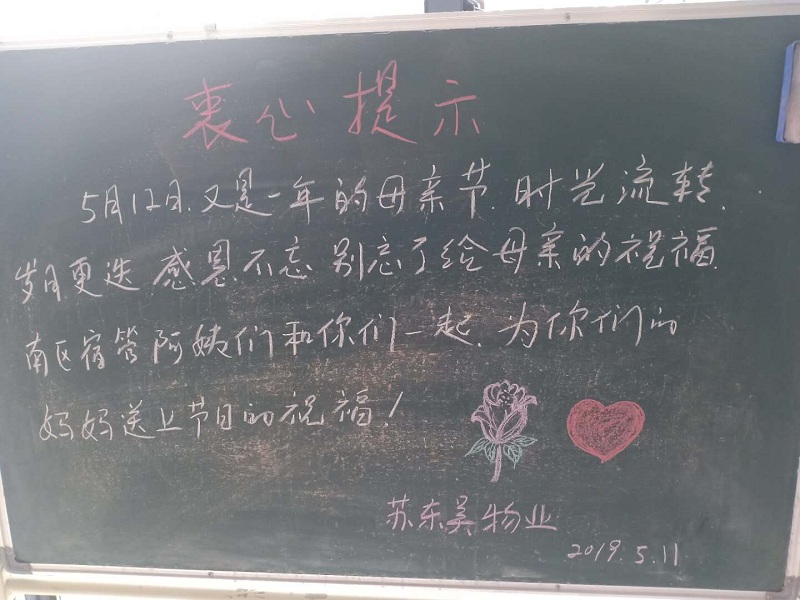 衷心提示
5月12日.又是一年的母亲节.时光流转.
岁月更迭.感恩不忘.别忘了给母亲的祝福.
南区宿管阿姨们和你们一起.为你们的
妈妈送上节日的祝福!
苏东吴物业
2019.5.11